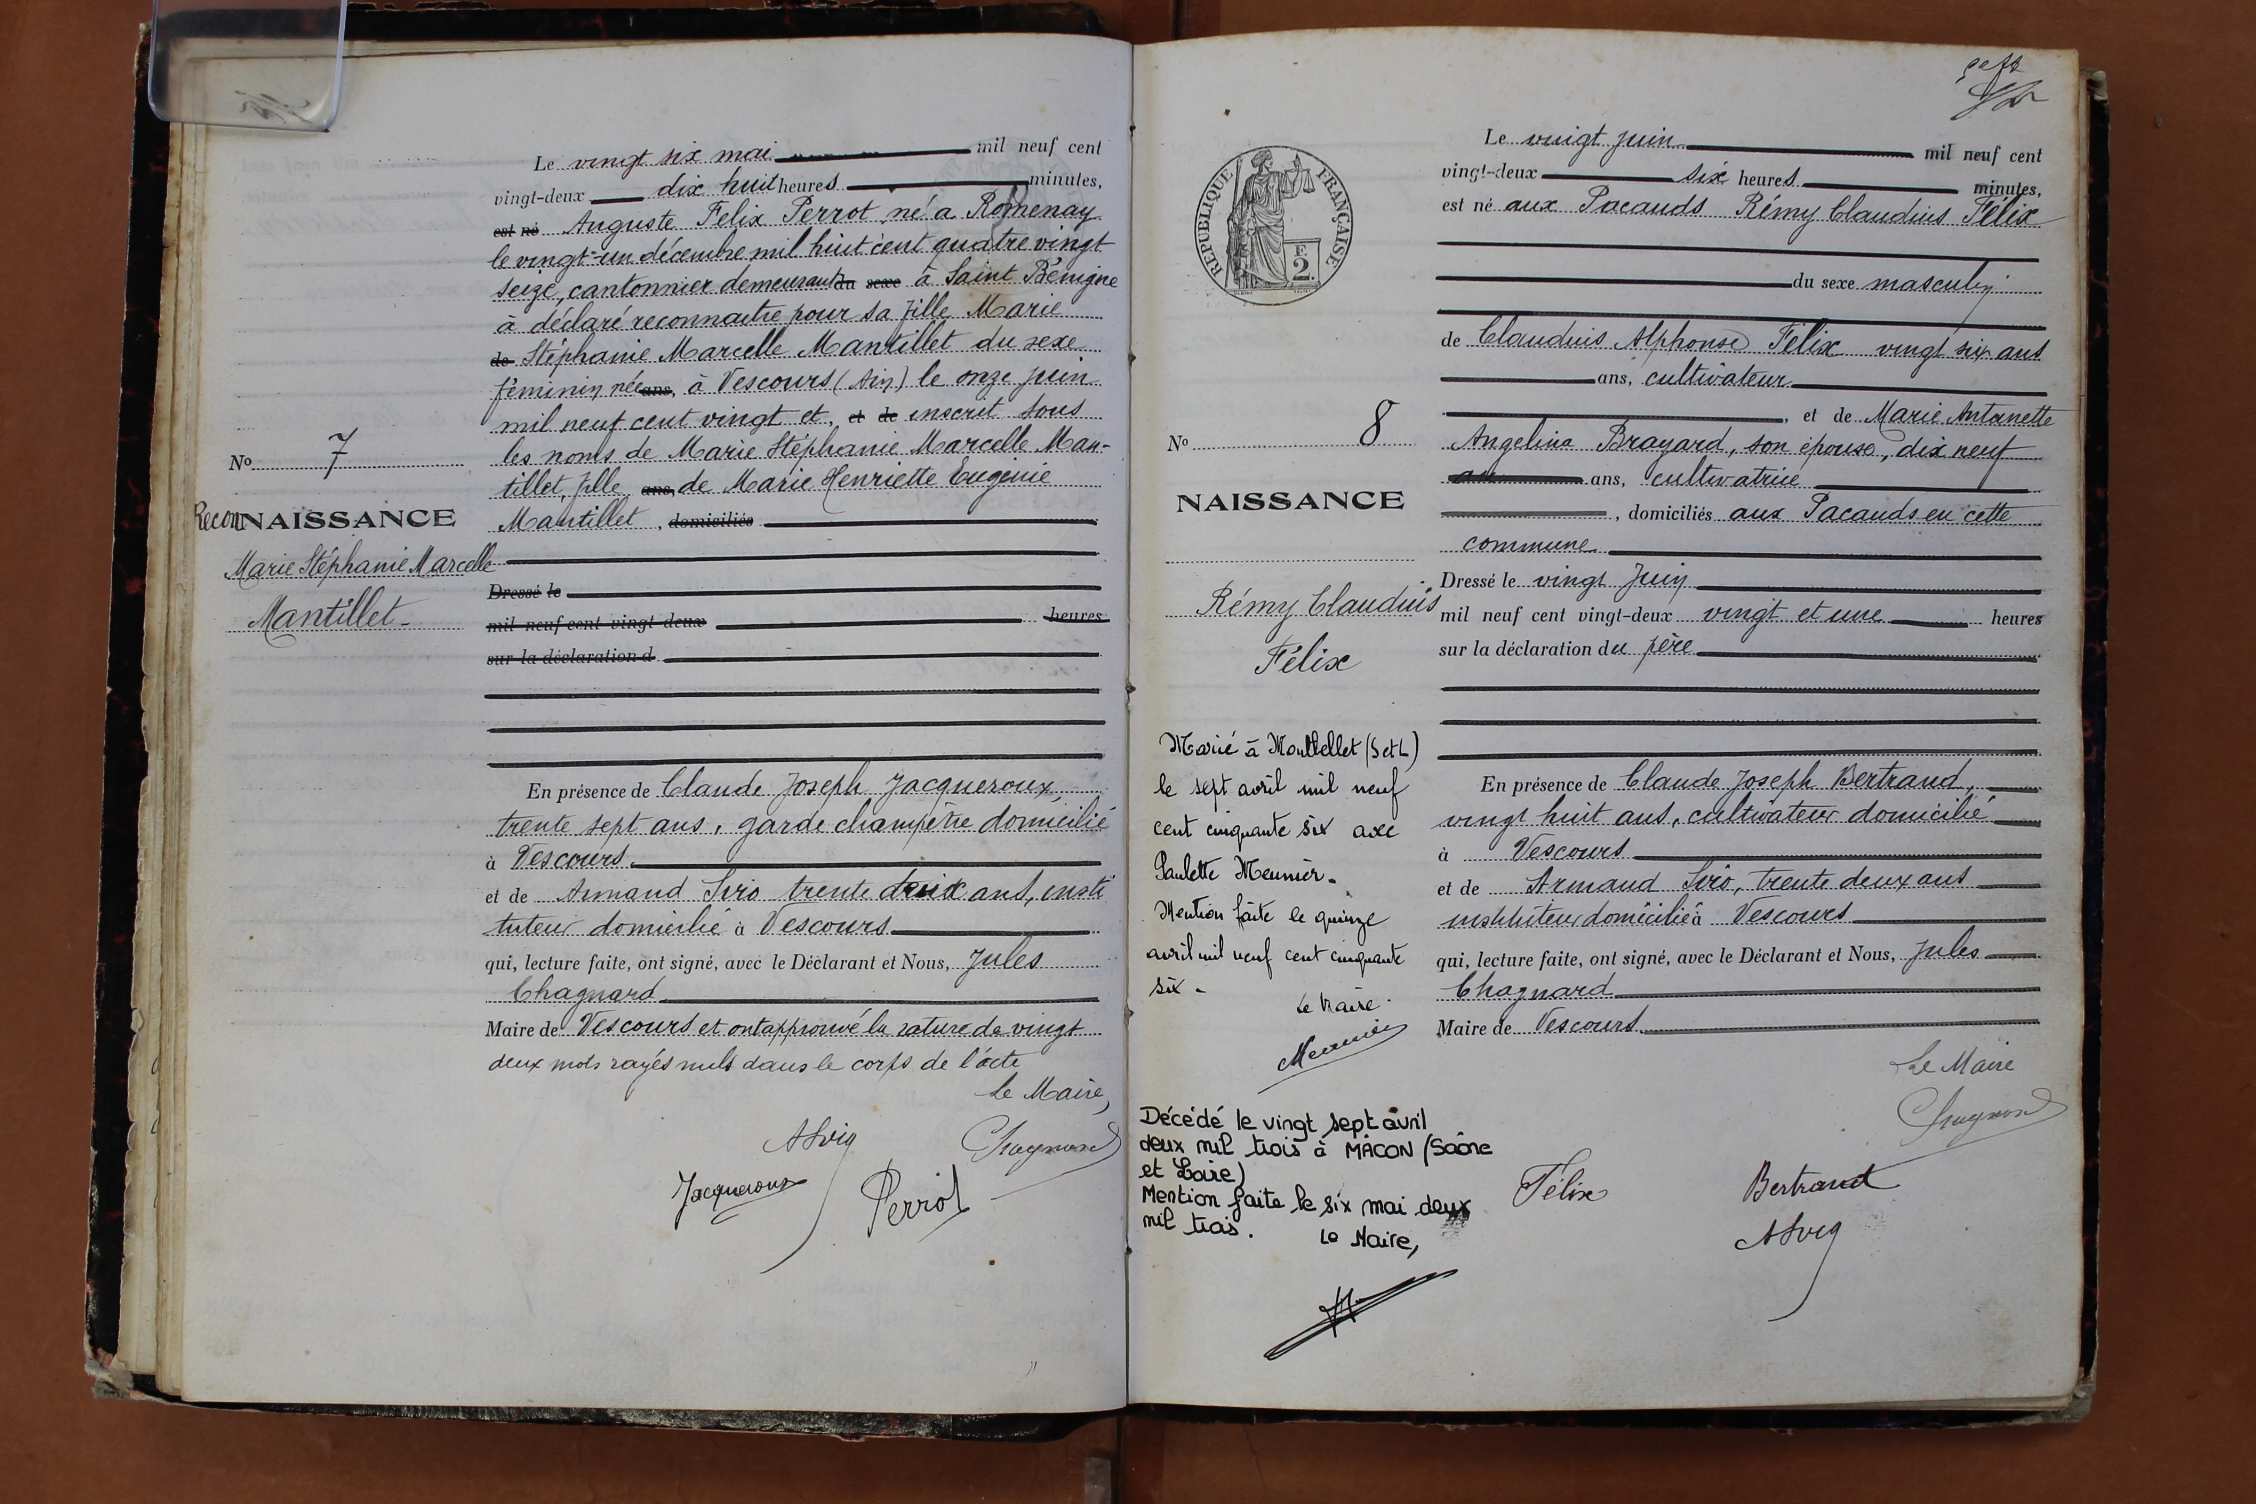 Le vingt six mai mil neuf cent
vingt-deux dix huit heures minutes,
est né Auguste Felix Perrot né à Romenay
le vingt-un décembre mil huit cent quatre vingt
seize, cantonnier demeurant du sexe à Saint Bénigne
à déclaré reconnaitre pour sa fille Marie
de Stéphanie Marcelle Mantillet du sexe
féminin née ans, à Vescours (Ain) le onze juin
mil neuf cent vingt et, et de inscrit sous
les noms de Marie Stéphanie Marcelle Man-
tillet, fille ans, de Marie Henriette Eugenie
Mantillet, domiciliés
Dressé le
mil neuf cent vingt-deux heures
sur la déclaration d
No 7
ReconNAISSANCE
Marie Stéphanie Marcelle
Mantillet
En présence de Claude Joseph Jacqueroux,
trente sept ans, garde champêtre domicilié
à Vescours.
et de Armand trente deux ans, insti
tuteur domicilié à Vescours
qui, lecture faite, ont signé, avec le Déclarant et Nous, Jules
Chagnard
Maire de Vescours et ont approuvé la rature de vingt
deux mots rayés nuls dans le corps de l'acte
Le Maire,
Chagnard
Jacqueroux
Perrot
RÉPUBLIQUE FRANÇAISE
2 F.
No 8
NAISSANCE
Rémy Claudius
Félix
Marié à Montbellet (S et L)
le sept avril mil neuf
cent cinquante six avec
Paulette Meunier.
Mention faite le quinze
avril mil neuf cent cinquante
six.
Le Maire.
Décédé le vingt sept avril
deux mil trois à MÂCON (Saône
et Loire)
Mention faite le six mai deux
mil trois.
Le Maire,
Le vingt juin mil neuf cent
vingt-deux six heures minutes,
est né aux Pacauds Rémy Claudius Félix
du sexe masculin
de Claudius Alphonse Félix vingt six ans
ans, cultivateur
, et de Marie Antoinette
Angelina Brayard, son épouse, dix neuf
ans, cultivatrice
, domiciliés aux Pacauds en cette
commune
Dressé le vingt Juin
mil neuf cent vingt-deux vingt et une heures
sur la déclaration du père
En présence de Claude Joseph Bertrand,
vingt huit ans, cultivateur domicilié
à Vescours
et de Armand trente deux ans
instituteur domicilié à Vescours
qui, lecture faite, ont signé, avec le Déclarant et Nous, Jules
Chagnard
Maire de Vescours
Le Maire
Chagnard
Félix
Bertrand